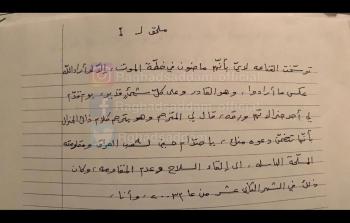 ملحق لـ I
ترسخت القناعه لديّ بأنهم ماضون في خطة الموت، إلّا إذا أراد الله
عكس ما أرادوا، وهو القادر وعلى كل شيء قدير، يوم تقدم
لي أحد جنرالاتهم ورقه، قال لي المترجم وهو يترجم كلام ذاك الجنرال
بأنها تتضمن دعوه من، يا صدام حسين لشعب العراق ومقاومته
المسلحة الباسله، إلى إلقاء السلاح وعدم المقاومه، وكان
ذلك في الشهر الثاني عشر من عام ٢٠٠٣، وأنا،
Raghadsaddam Official